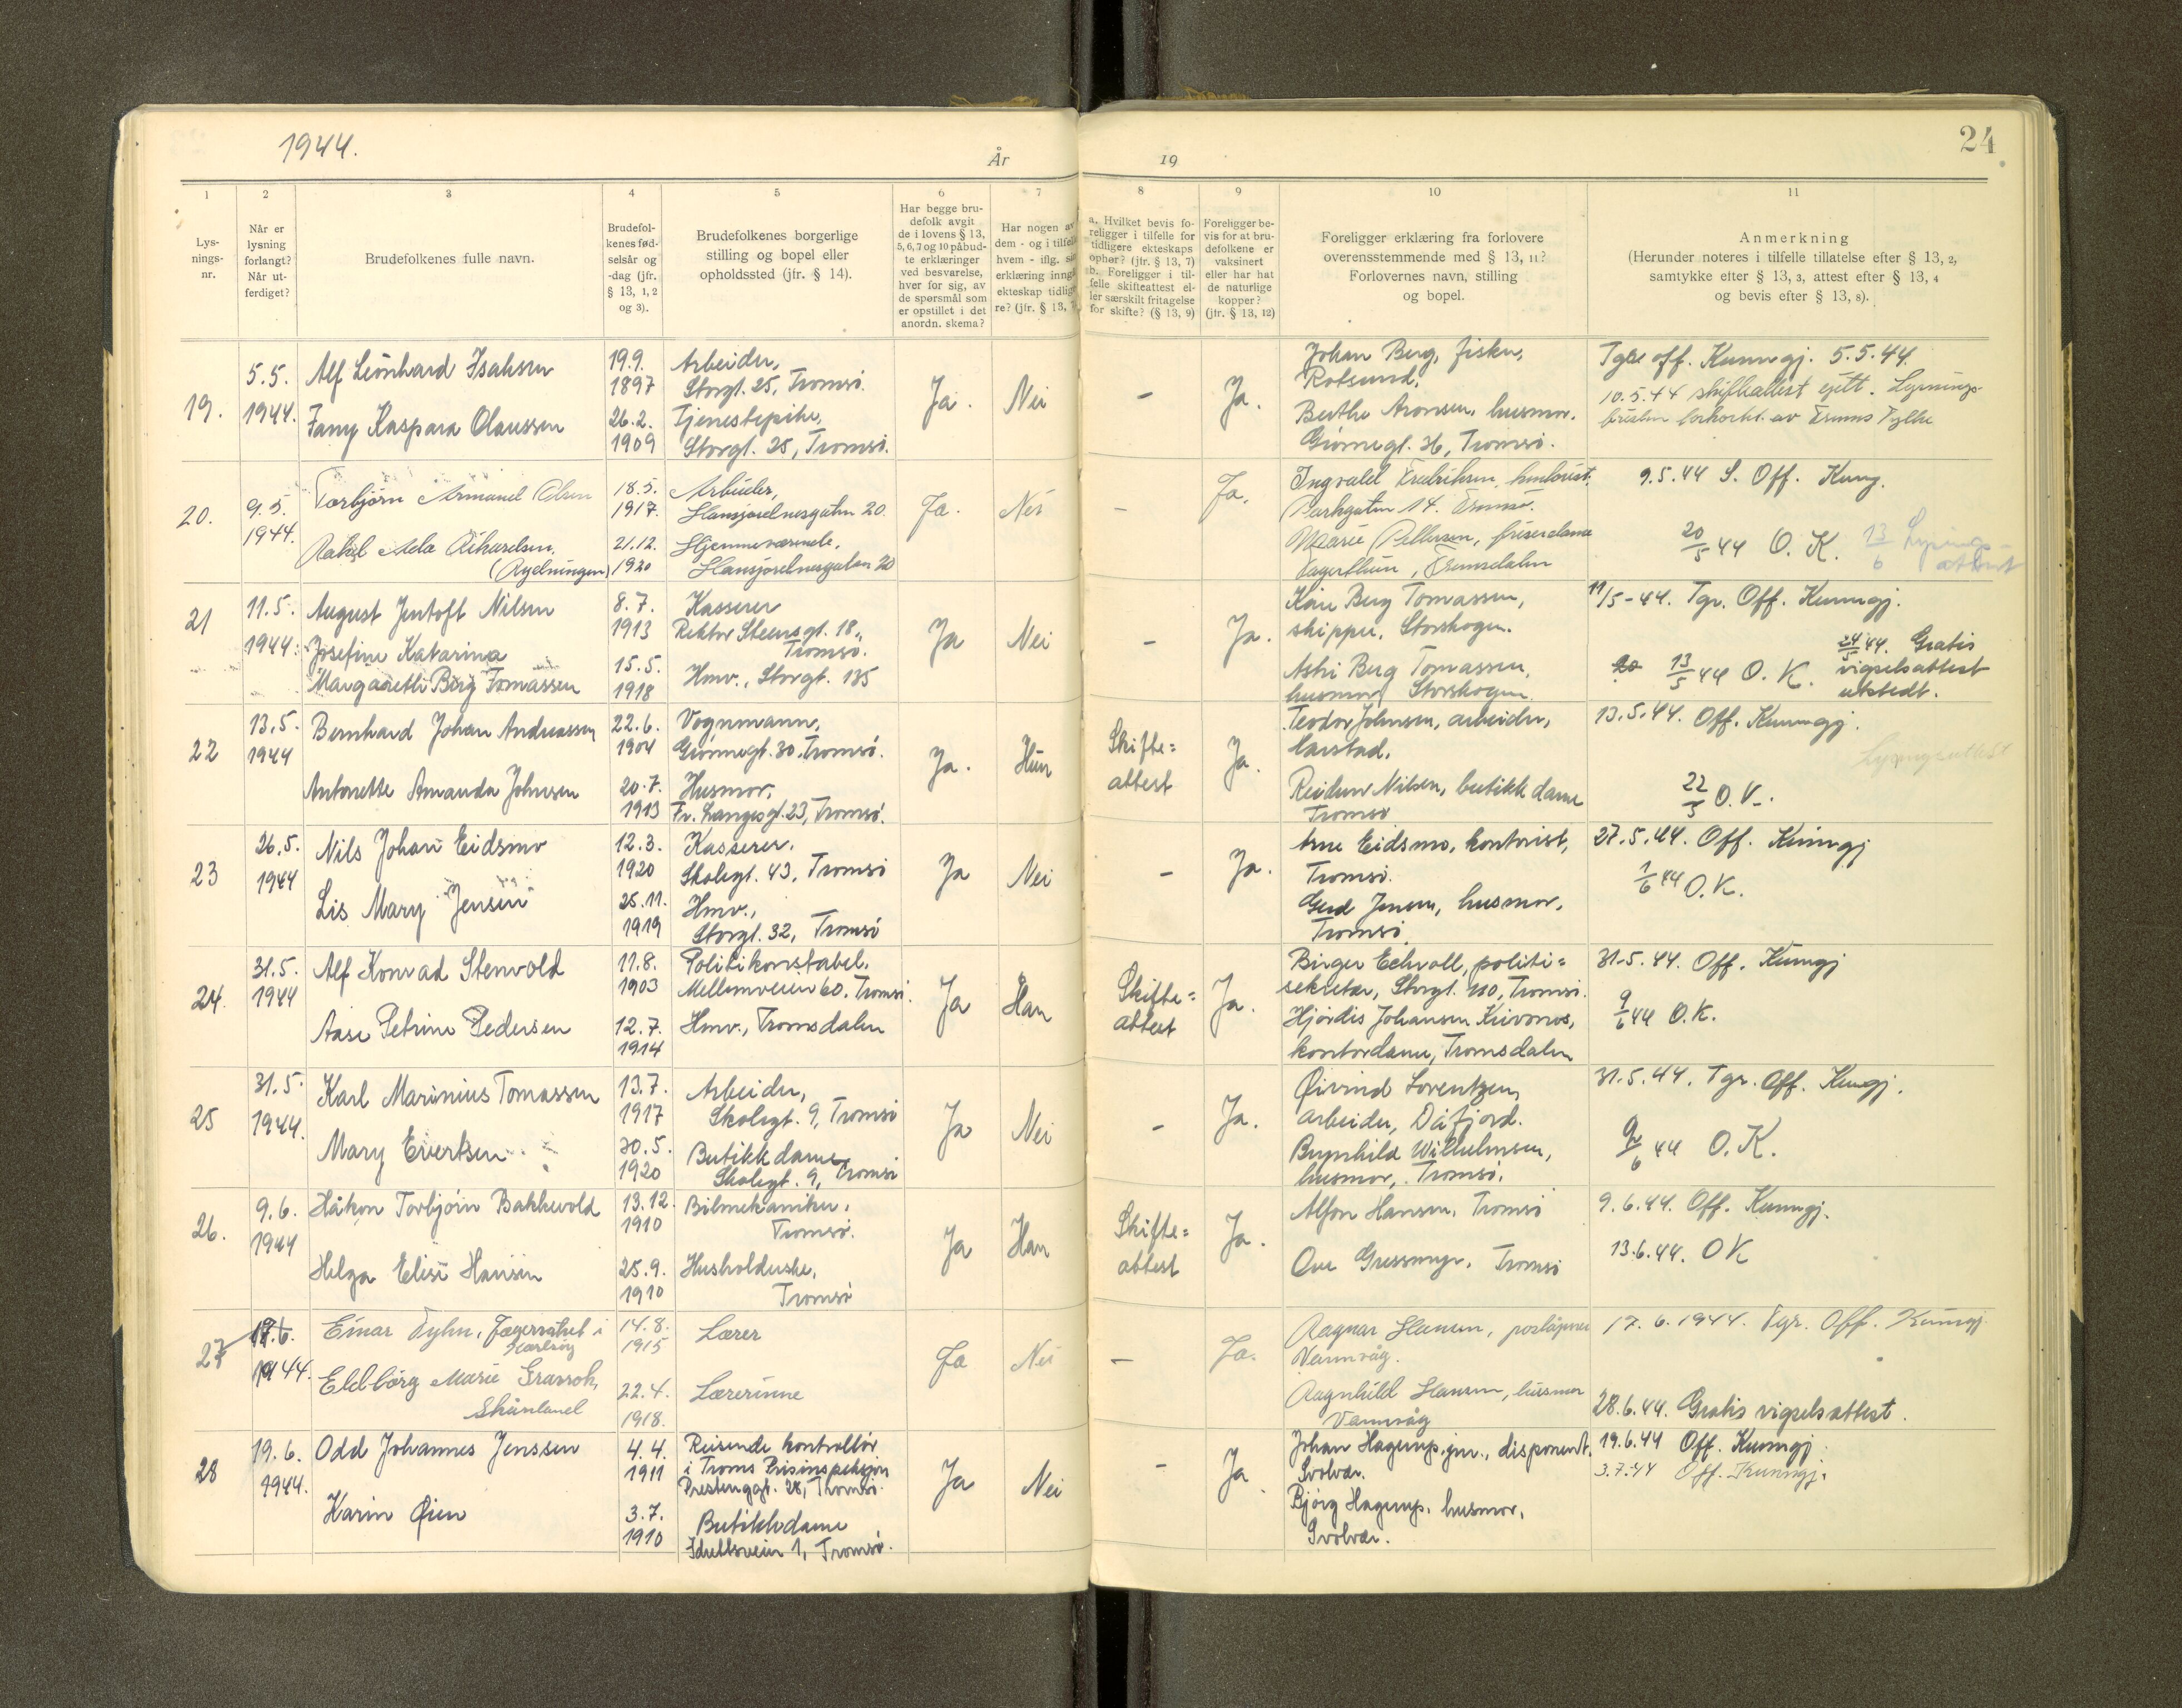 1944.
År
19
24
1
2
3
4
5
6
7
8
9
10
11
Lys-
nings-
nr.
Når er
lysning
forlangt?
Når ut-
ferdiget?
Brudefolkenes fulle navn.
Brudefol-
kenes fød-
selsår og
-dag (jfr.
§ 13, 1, 2
og 3).
Brudefolkenes borgerlige
stilling og bopel eller
opholdssted (jfr. § 14).
Har begge bru-
defolk avgit
de i lovens § 13,
5, 6, 7 og 10 påbud-
te erklæringer
ved besvarelse,
hver for sig, av
de spørsmål som
er opstillet i det
anordn. skema?
Har nogen av
dem - og i tilfelle
hvem - iflg. sin
erklæring inngått
ekteskap tidlige-
re? (jfr. § 13, 7)
a. Hvilket bevis fo-
religger i tilfelle for
tidligere ekteskaps
ophør? (jfr. § 13, 7)
b. Foreligger i til-
felle skifteattest el-
ler særskilt fritagelse
for skifte? (§ 13, 9)
Foreligger be-
vis for at bru-
defolkene er
vaksinert
eller har hat
de naturlige
kopper?
(jfr. § 13, 12)
Foreligger erklæring fra forlovere
overensstemmende med § 13, 11?
Forlovernes navn, stilling
og bopel.
Anmerkning
(Herunder noteres i tilfelle tillatelse efter § 13, 2,
samtykke efter § 13, 3, attest efter § 13, 4
og bevis efter § 13, 8).
19.
5.5.
1944.
Alf Leonhard Isaksen
Fany Kaspara Olaussen
19.9.
1897
26.2.
1909
Arbeider,
Storgt. 25, Tromsø.
Tjenestepike,
Storgt. 25, Tromsø.
Ja.
Nei
-
Ja.
Johan Berg, fisker,
Rotsund.
Berthe Aronsen, husmor.
Grønnegt. 36, Tromsø.
off. Kunngj. 5.5.44.
10.5.44 skifteattest ejett. Lysnings-
av Troms Fylke
20.
9.5.
1944.
Torbjørn Armand Olsen
Rakel Adla Rikardsen,
(Rydningen)
18.5.
1917.
21.12.
1920
Arbeider,
Hansjordnesgaten 20.
Hjemmeværende,
Hansjordnesgaten 20
Ja.
Nei
-
Ja.
Ingvald Fredriksen,
Parkgaten 14. Tromsø.
Marie Pettersen, friserdame
Fagerheim, Tromsdalen
9.5.44 S. Off. Kung.
20/5 44 O. K.
13/6 Lysnings-
attest
21
11.5.
1944.
August Jentoft Nilsen
Josefine Katarina
Margarethe Berg Tomassen
8.7.
1913
15.5.
1918
Kasserer
Rektor Steensgt. 18,
Tromsø.
Hmv., Storgt. 135
Ja
Nei
-
Ja.
Kåre Berg Tomassen,
skipper, Storskogen.
Astri Berg Tomassen,
husmor, Storskogen.
11/5-44. Tgr. Off. Kunngj.
13/5 44 O. K.
24/5 44. Gratis
vigselsattest
utstedt.
22
13.5.
1944
Bernhard Johan Andreassen
Antonette Amanda Johnsen
22.6.
1904
20.7.
1913
Vognmann,
Grønnegt. 30, Tromsø.
Husmor,
Fr. Langesgt. 23, Tromsø.
Ja.
Hun
Skifte=
attest
Ja.
Teodor Johnsen, arbeider,
Reidun Nilsen, butikkdame
Tromsø
13.5.44. Off. Kunngj.
Lysningsattest
22/5 O.V.
23
26.5.
1944
Nils Johan Eidsmo
Lis Mary Jensen
12.3.
1920
25.11.
1919
Kasserer.
Skolegt. 43, Tromsø
Hmv.,
Storgt. 32, Tromsø
Ja
Nei
-
Ja.
Arne Eidsmo, kontorist,
Tromsø.
Gerd Jensen, husmor,
Tromsø.
27.5.44. Off. Kunngj
1/6 44 O.K.
24.
31.5.
1944
Alf Konrad Stenvold
Aase Petrine Pedersen
11.8.
1903
12.7.
1914
Politikonstabel.
Mellemveien 60, Tromsø.
Hmv., Tromsdalen
Ja
Han
Skifte=
attest
Ja.
Birger Eckvoll, politi=
sekretær, Storgt. 110, Tromsø.
Hjørdis Johansen
kontordame, Tromsdalen
31.5.44. Off. Kunngj
9/6 44 O.K.
25
31.5.
1944.
Karl Marinius Tomassen
Mary Evertsen
13.7.
1917
30.5.
1920
Arbeider,
Skolegt. 9, Tromsø
Butikkdame
Skolegt. 9, Tromsø
Ja
Nei
-
Ja.
Øivind Lorentzen,
arbeider, Dåfjord.
Brynhild Wilhelmsen,
husmor, Tromsø.
31.5.44. Tgr. Off. Kunngj.
9/6 44 O.K.
26.
9.6.
1944
Håkon Torbjørn Bakkevold
Helga Elise Hansen
13.12.
1910
25.9.
1910
Bilmekaniker,
Tromsø.
Husholderske,
Tromsø
Ja
Han
Skifte=
attest
Ja.
Alfon Hansen, Tromsø
Ove Gressmyr, Tromsø
9.6.44. Off. Kunngj.
13.6.44. OK
27
17.6.
1944.
Einar Tyhn, Fagervatnet i
Karlsøy
Eldbørg Marie
Skånland
14.8.
1915
22.4.
1918.
Lærer
Lærerinne
Ja
Nei
-
Ja.
Ragnar Hansen, poståpner
Vannvåg.
Ragnhild Hansen, husmor
Vannvåg
17.6.1944. Tgr. Off. Kunngj.
28.6.44. Gratis vigselsattest.
28
19.6.
1944.
Odd Johannes Jenssen
Karin Øien
4.4.
1911
3.7.
1910
Reisende kontrollør
i Troms Prisinspeksjon
Prestenggt. 28, Tromsø.
Butikkdame
Idrettsveien 1, Tromsø.
Ja
Nei
-
Ja.
Johan Hagerup, jnr., disponent.
Svolvær.
Bjørg Hagerup, husmor,
Svolvær.
19.6.44 Off. Kunngj
3.7.44 Off. Kunngj.